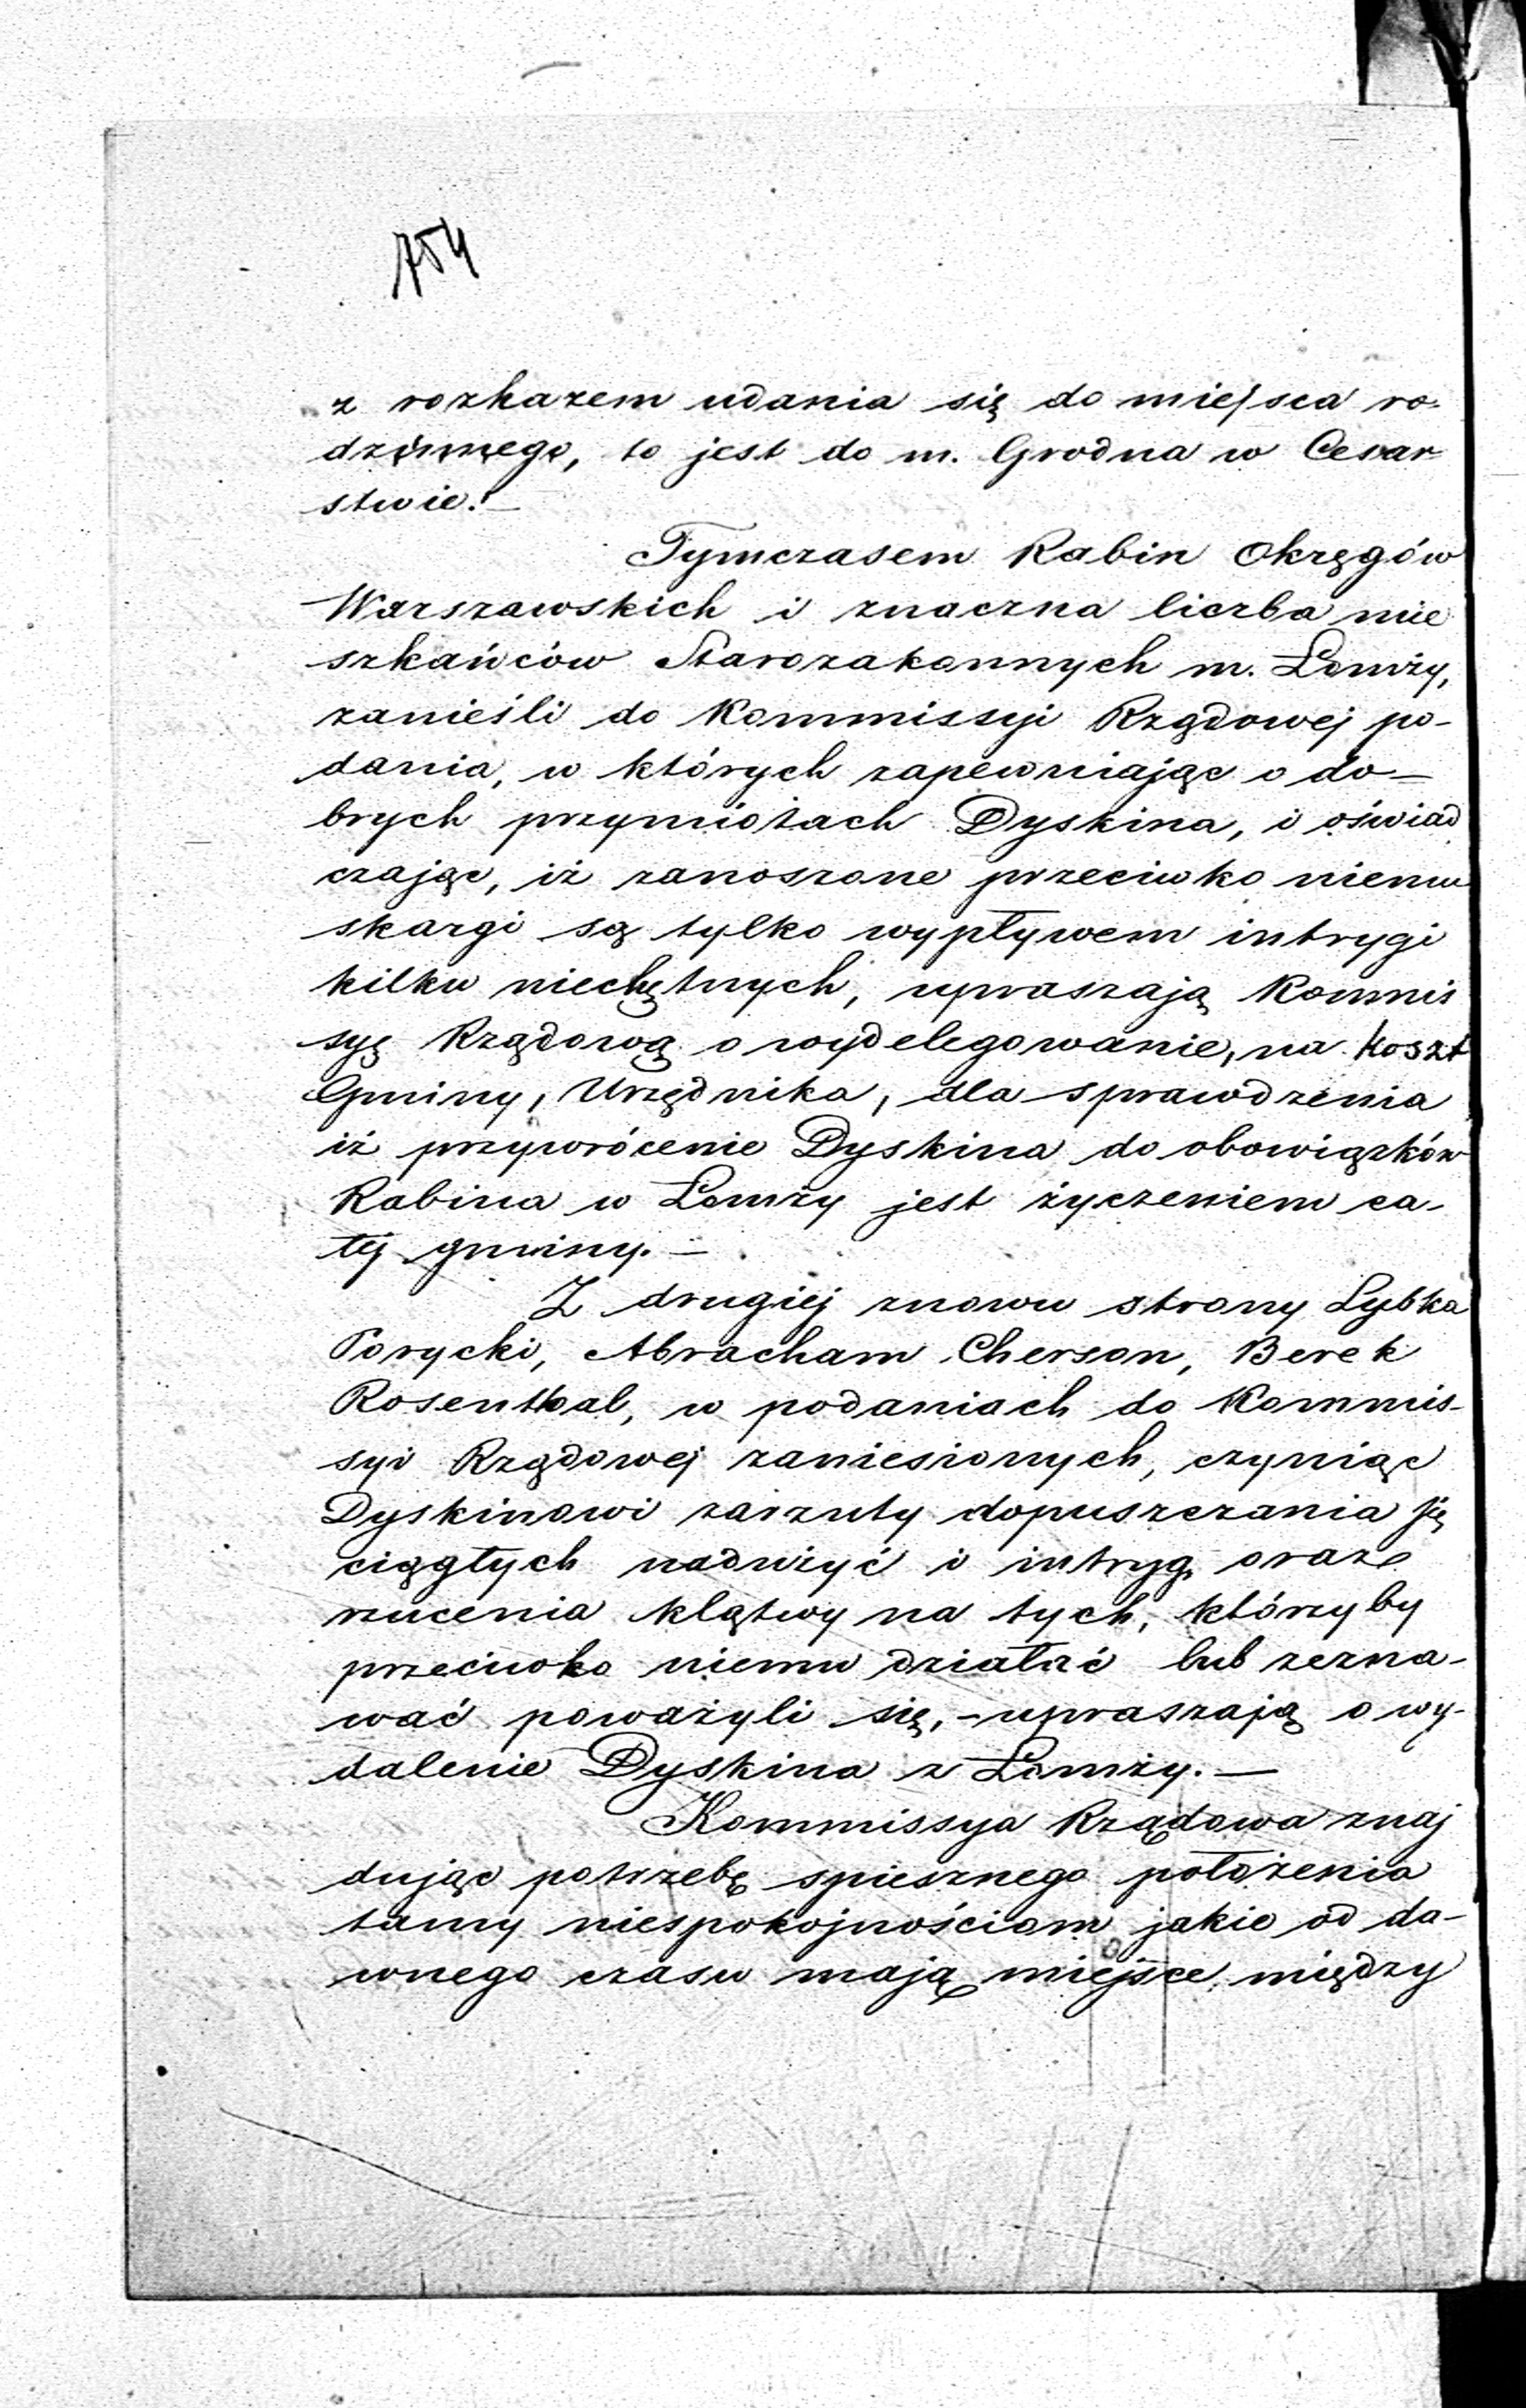 754
z rozkazem udania się do miejsca ro-
dzinnego, to jest do m. Grodna w Cesar-
stwie.—
Tymczasem Rabin Okręgów
Warszawskich i znaczna liczba mie
szkańców Starozakonnych m. Łomży,
zanieśli do Kommissyi Rządowej po-
dania, w których zapewniając o do-
brych przymiotach Dyskina, i oświad
czając, iż zanoszone przeciwko niemu
skargi są tylko wypływem intrygi
kilku niechętnych, upraszają Kommis
syę Rządową o wydelegowanie, na koszt
Gminy, Urzędnika, dla sprawdzenia
iż przywrócenie Dyskina do obowiązków
Rabina w Łomży jest życzeniem ca-
łej gminy.—
Z drugiej znowu strony Lybka
Porycki, Abracham Cherson, Berek
Rosenthal, w podaniach do Kommis-
syi Rządowej zaniesionych, czyniąc
Dyskinowi zarzuty dopuszczania się
ciągłych nadużyć i intryg, oraz
rzucenia klątwy na tych, którzyby
przeciwko niemu działać lub zezna-
wać poważyli się,- upraszają o wy-
dalenie Dyskina z Łomży.—
Kommissya Rządowa znaj
dując potrzebę spiesznego położenia
tamy niespokojnościom jakie od da-
wnego czasu mają miejsce między